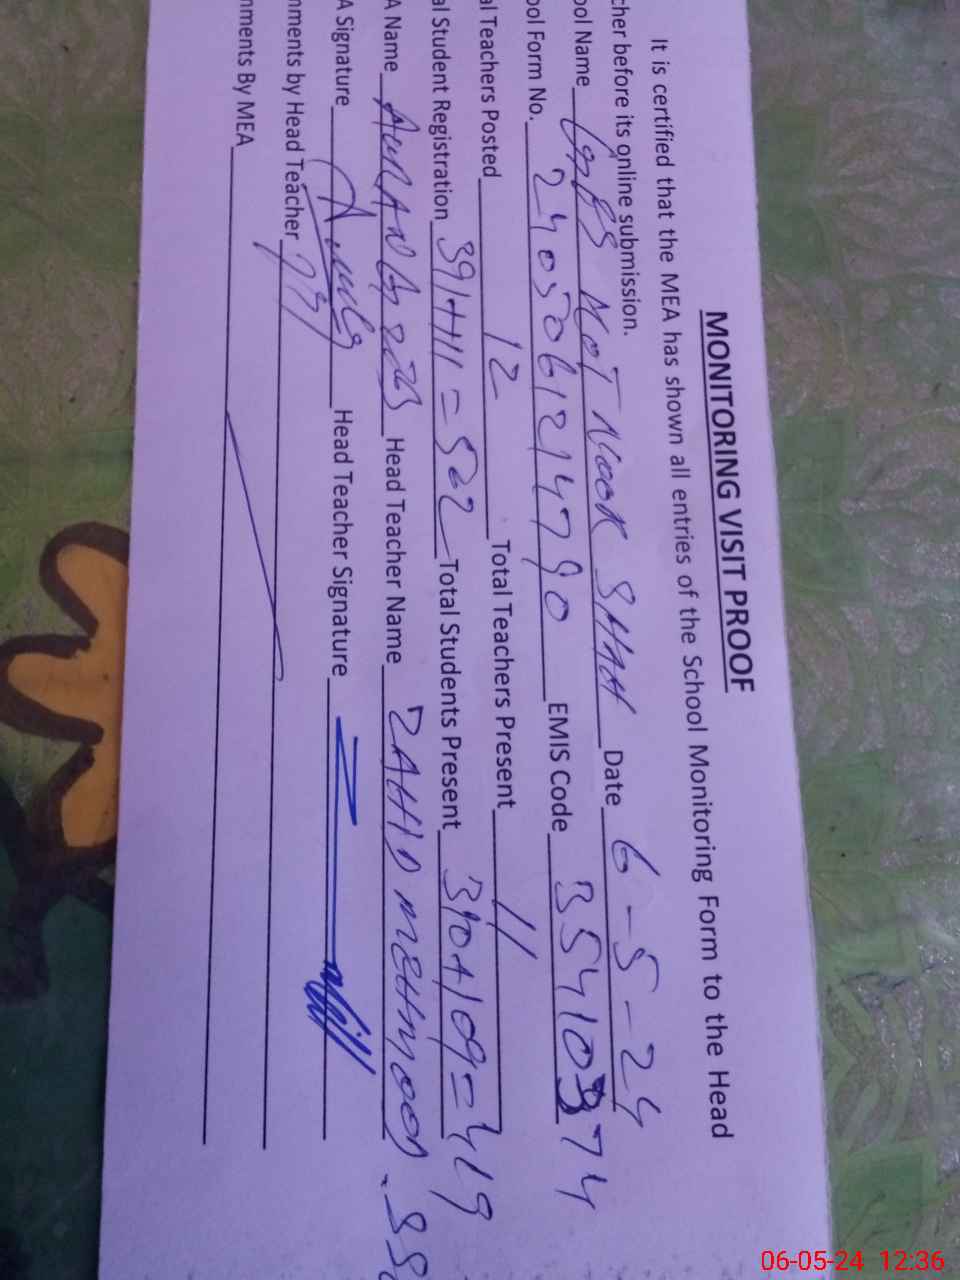 MONITORING VISIT PROOF
It is certified that the MEA has shown all entries of the School Monitoring Form to the Head
cher before its online submission.
ool Name GPS KOT NOOR SHAH Date 6-5-24
ool Form No. 24050612147 90 EMIS Code 35410374
al Teachers Posted 12 Total Teachers Present 11
al Student Registration 391+111=502 Total Students Present 310+109=419
A Name Head Teacher Name ZAHID MEHMOOD
A Signature Head Teacher Signature
nments by Head Teacher
nments By MEA
06-05-24 12:36